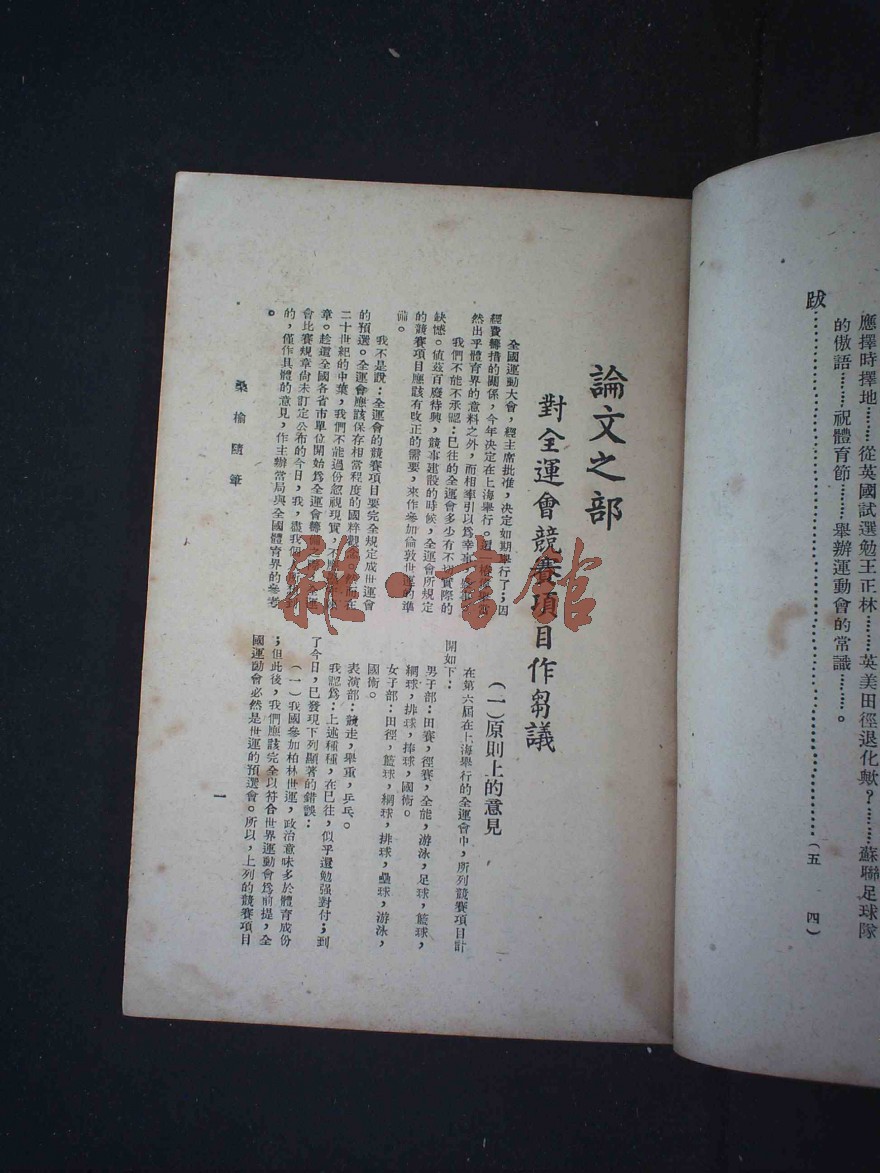 應擇時擇地………從英國試選勉王正林………英美田徑退化歟？………蘇聯足球隊
的傲語………祝體育節………舉辦運動會的常識………。
跋……………………………………………………（五四）
論文之部
對全運會競賽項目作芻議
全國運動大會，經主席批准，決定如期舉行了；因
經費籌措的關係，今年決定在上海舉行。
然出乎體育界的意料之外，而相率引以爲幸
我們不能不承認：已往的全運會多少有不切實際的
缺憾。值茲百廢待興，競事建設的時候，全運會所規定
的競賽項目應該有改正的需要，來作參加倫敦世運的準
備。
我不是說：全運會的競賽項目要完全規定成世運會
的預選。全運會應該保存相當程度的國粹觀念，然而在
二十世紀的中葉，我們不能過份忽視現實，不
章。趁這全國各省市單位開始爲全運會籌備
會比賽規章尚未訂定公布的今日，我，盡我個
的，僅作具體的意見，作主辦當局與全國體育界的參考
。
（一）原則上的意見
在第六屆在上海舉行的全運會中，所列競賽項目計
開如下：
男子部：田賽，徑賽，全能，游泳，足球，籃球，
網球，排球，捧球，國術。
女子部：田徑，籃球，網球，排球，壘球，游泳，
國術。
表演部：競走，舉重，乒乓。
我認爲：上述種種，在已往，似乎還勉强對付；到
了今日，已發現下列顯著的錯誤：
（一）我國參加柏林世運，政治意味多於體育成份
；但此後，我們應該完全以符合世界運動會爲前提，全
國運動會必然是世運的預選會。所以，上列的競賽項目
桑榆隨筆
一
雜·書館